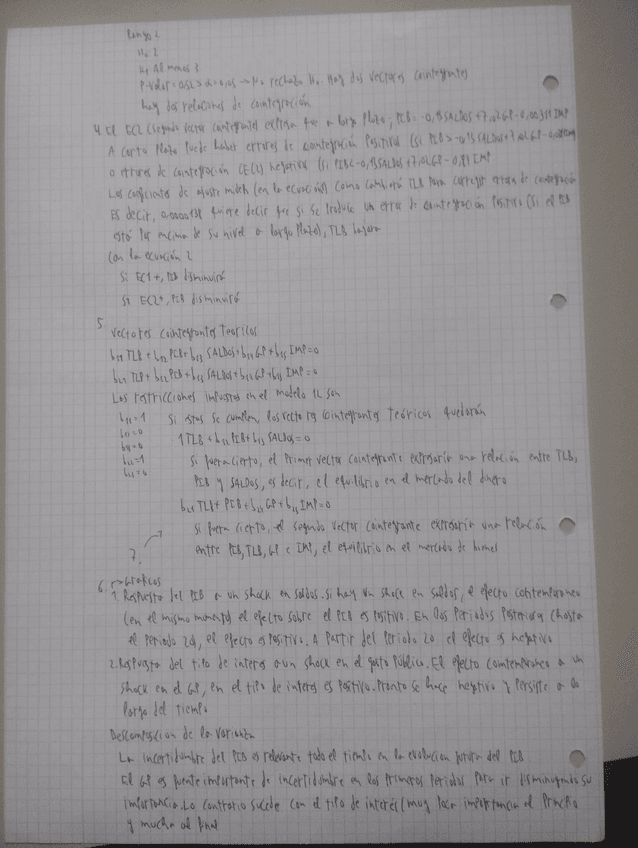 Rango 2
H0 2
H1 Al menos 3
P-valor = 0,52 > α = 0,05 → No rechazo H0. Hay dos vectores cointegrantes
hay dos relaciones de cointegración
4. El EC2 (segundo vector cointegrante) expresa que a largo plazo, PIB = -0,15SALDOS + 7,02GP - IMP
A corto plazo puede haber errores de cointegración positivos (si PIB > -0,15SALDOS + 7,02GP -
o errores de cointegración (EC2) negativos (si PIB < -0,15SALDOS + 7,02GP - IMP
Los coeficientes de ajuste miden (en la ecuación) como cambiará TLB para corregir errores de cointegración
Es decir, quiere decir que si se produce un error de cointegración positivo (si el PIB
está por encima de su nivel a largo plazo), TLB bajara
Con la ecuación 2
Si EC1+, PIB disminuirá
Si EC2+, PIB disminuirá
5.
Vectores cointegrantes Teoricos
b11 TLB + b12 PIB + b13 SALDOS + b14 GP + b15 IMP = 0
b21 TLB + b22 PIB + b23 SALDOS + b24 GP + b25 IMP = 0
Los restricciones impuestas en el modelo 12 son
b11 = 1 Si estas se cumplen, los vectores cointegrantes Teóricos quedarán
1 TLB + b12 PIB + b13 SALDOS = 0
b22 = 1 Si fuera cierto, el primer vector cointegrante expresaría una relación entre TLB,
PIB y SALDOS, es decir, el equilibrio en el mercado del dinero
b21 TLB + PIB + b24 GP + b25 IMP = 0
Si fuera cierto, el segundo vector cointegrante expresaría una relación
? entre PIB, TLB, GP e IMP, el equilibrio en el mercado de bienes
6. → Graficos
1. Respuesta del PIB a un shock en saldos. Si hay un shock en saldos, el efecto contemporaneo
(en el mismo momento) el efecto sobre el PIB es positivo. En los periodos posteriores (hasta
el periodo 20), el efecto es positivo. A partir del periodo 20 el efecto es negativo
2. Respuesta del tipo de interes a un shock en el gasto público. El efecto comtemporaneo a un
shock en el GP, en el tipo de interes es positivo. Pronto se hace negativo y persiste a lo
largo del tiempo
Descomposicion de la varianza
La incertidumbre del PIB es relevante todo el tiempo en la evolucion futura del PIB
El GP es fuente importante de incertidumbre en los primeros periodos para ir disminuyendo su
importancia. Lo contrario sucede con el tipo de interés (muy poca importancia al principio
y mucha al final